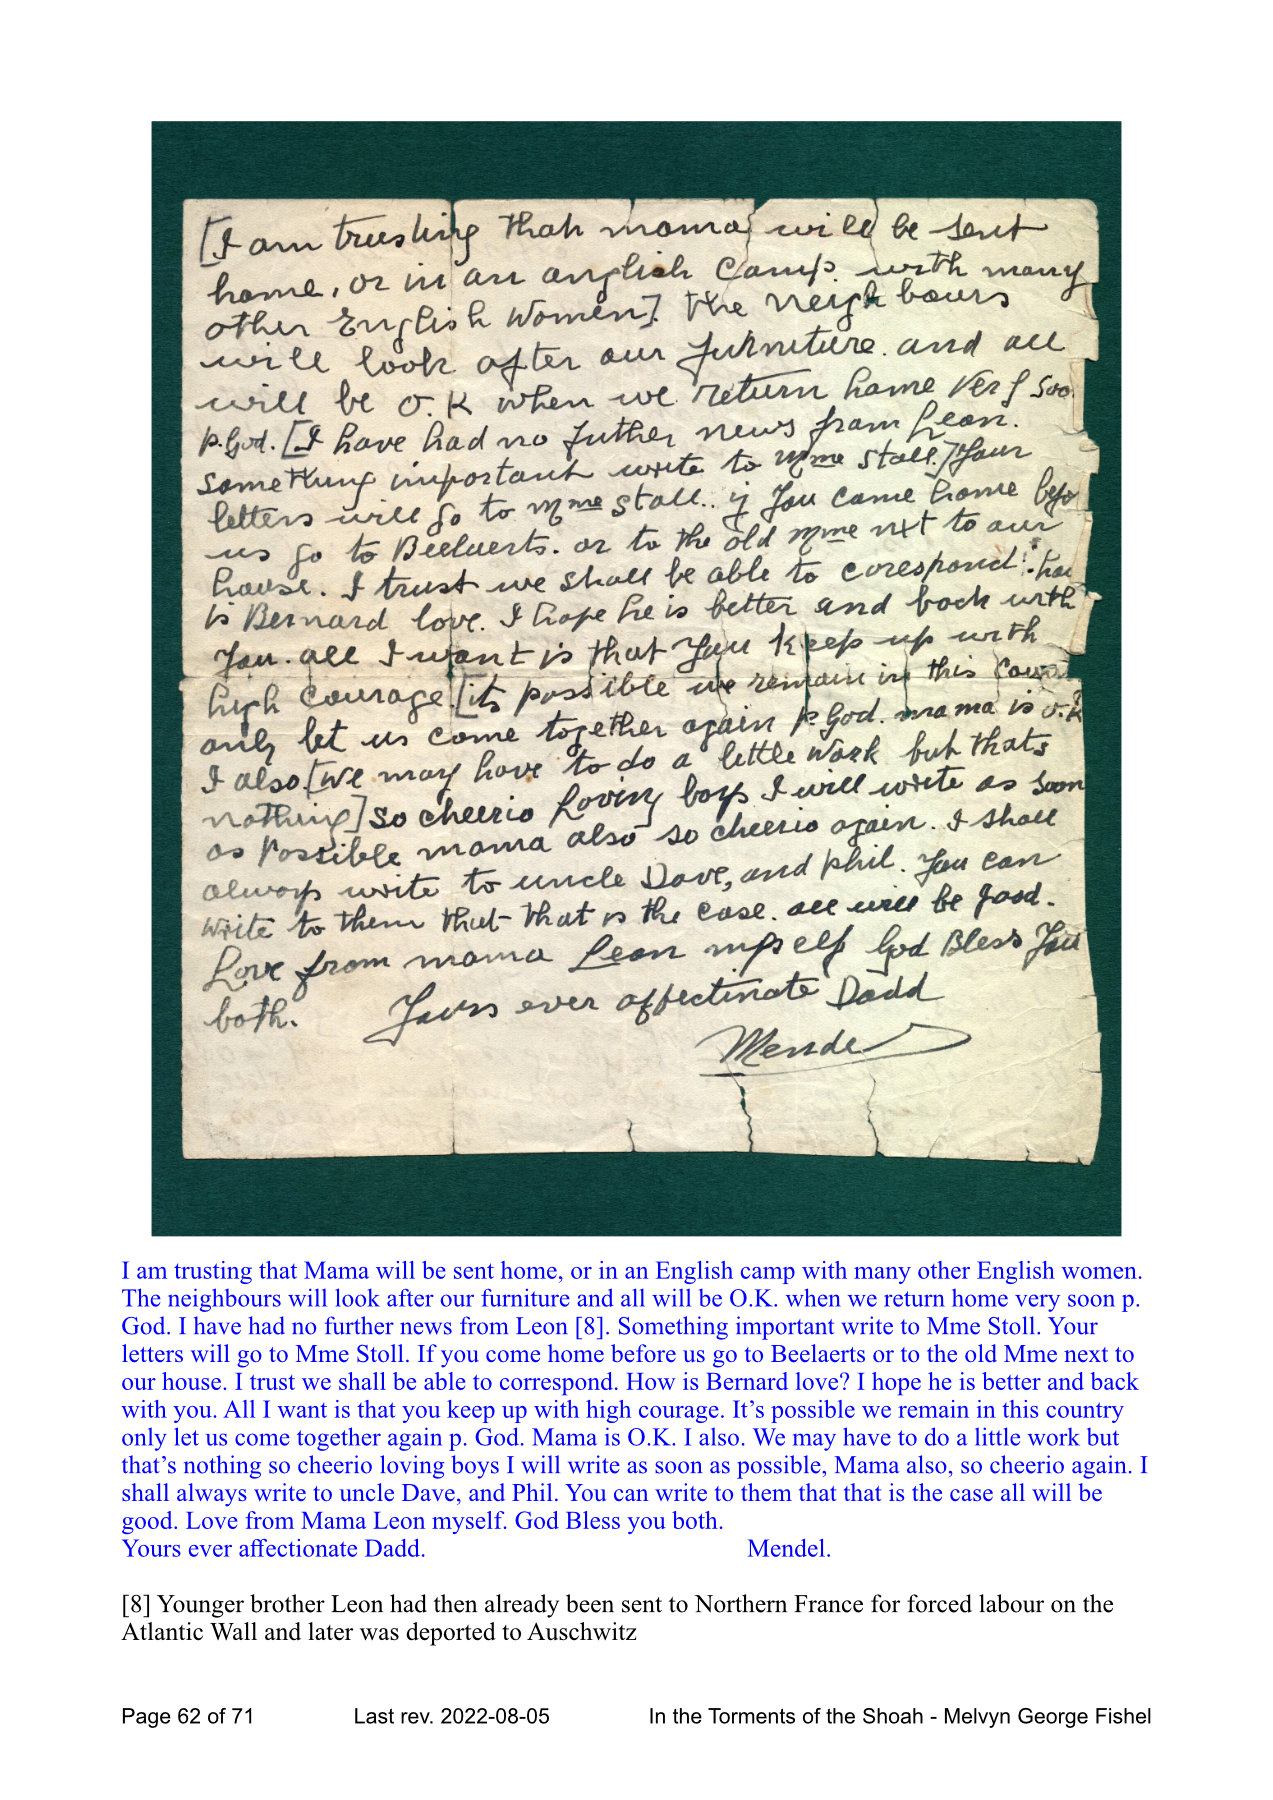 [I am trusting that mama will be sent
home, or in an anglish camp. with many
other English Women]. the neighbours
will look after our furniture. and all
will be O.K when we return home very soo
p.God. [I have had no futher news from Leon.
something important write to Mme Stoll.] Your
letters will go to Mme Stoll.. if You come home befo
us go to Beelaerts. or to the old Mme nxt to our
house. I trust we shall be able to corespond: ho
is Bernard love. I hope he is better and back with
You. all I want is that You keep up with
high courage. [its possible we remain in this coun
only let us come together again p.God. mama is O.K
I also. [we may have to do a little work but thats
nothing] so cheerio Loving boys I will write as soon
as Possible mama also so cheerio again. I shall
always write to uncle Dave, and Phil. You can
write to them that that is the case. all will be good.
Love from mama Leon myself God Bless You
both. Yours ever affectinate Dadd
Mendel
I am trusting that Mama will be sent home, or in an English camp with many other English women.
The neighbours will look after our furniture and all will be O.K. when we return home very soon p.
God. I have had no further news from Leon [8]. Something important write to Mme Stoll. Your
letters will go to Mme Stoll. If you come home before us go to Beelaerts or to the old Mme next to
our house. I trust we shall be able to correspond. How is Bernard love? I hope he is better and back
with you. All I want is that you keep up with high courage. It’s possible we remain in this country
only let us come together again p. God. Mama is O.K. I also. We may have to do a little work but
that’s nothing so cheerio loving boys I will write as soon as possible, Mama also, so cheerio again. I
shall always write to uncle Dave, and Phil. You can write to them that that is the case all will be
good. Love from Mama Leon myself. God Bless you both.
Yours ever affectionate Dadd. Mendel.
[8] Younger brother Leon had then already been sent to Northern France for forced labour on the
Atlantic Wall and later was deported to Auschwitz
Page 62 of 71 Last rev. 2022-08-05 In the Torments of the Shoah - Melvyn George Fishel